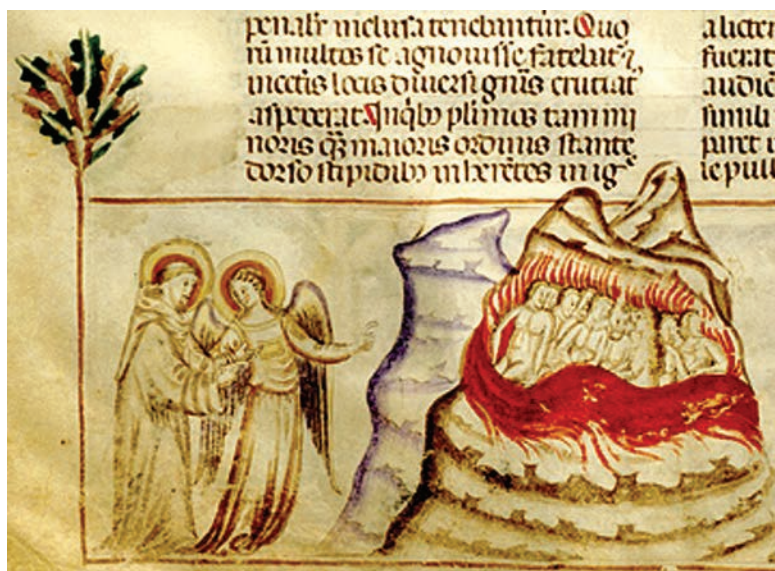 penalit̃ inclusa tenebantur. Quo
rũ multos se agnouisse fatebat̃ ⁊
locis diuersi gñis cruciat
aspexerat. In qib; plimos tam mi
noris q̃ maioris ordinis stante
dorso stipidib; inherẽtes in ig
fuerat
audiẽ
simili